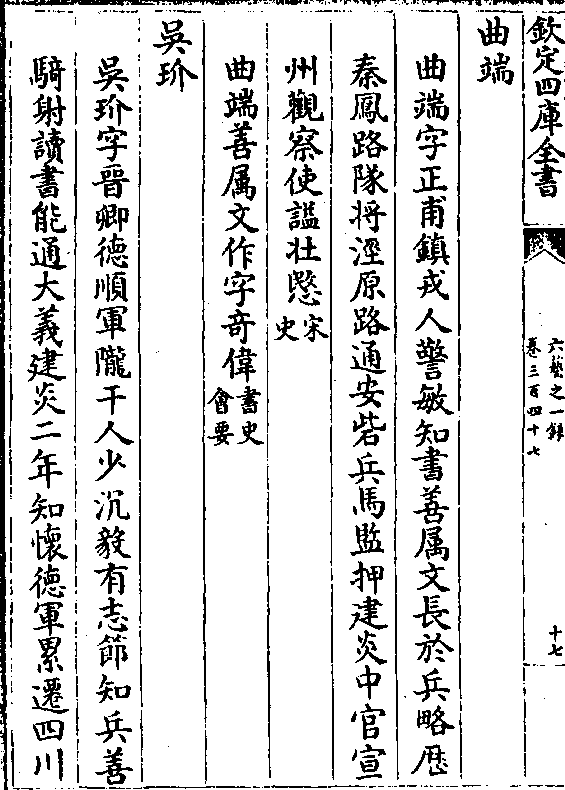 欽定四庫全書
六藝之一錄
卷三百四十七
十七
曲端
曲端字正甫鎮戎人警敏知書善属文長於兵略歴
秦鳳路隊将涇原路通安砦兵馬監押建炎中官宣
州觀察使諡壮愍宋史
曲端善属文作字奇偉書史會要
吳玠
吳玠字晉卿德順軍隴干人少沉毅有志節知兵善
騎射讀書能通大義建炎二年知懷德軍累遷四川